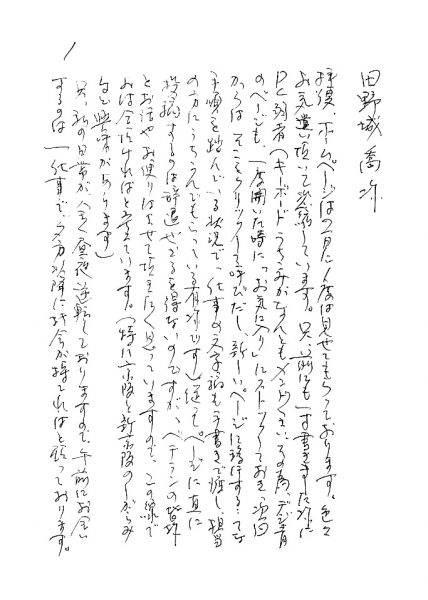 田野城 喬
拝復、ホームページは2ヶ月に1度は見せてもらっております。色々
お気遣い頂いて恐縮しています。只、前にも一寸書きました様に
PC弱者(キーボードうちこみがなんともメンドくさい)その為、デジ青
のページも、一度開いた時に「お気に入り」にストックしておき、次回
からは そこをクリックして呼びだし、新しいページに移行する?てな
手順を踏んでいる状況で、仕事の文字稿も手書きで渡し、担当
の方にうちこんでもらっている有様です)従って、ページに直に
投稿するのは辞退せざるを得ないのですが、ベテランの皆様
とお話やお便りはさせて頂きたく思っていますので、この線で
お付合頂ければと考えています。(特に京阪と新京阪のしがらみ
など興味があります)
只、私の日常が全く昼夜逆転しておりますので、午前にお会い
するのは一仕事で、夕方以降に機会が持てればと願っております。
1